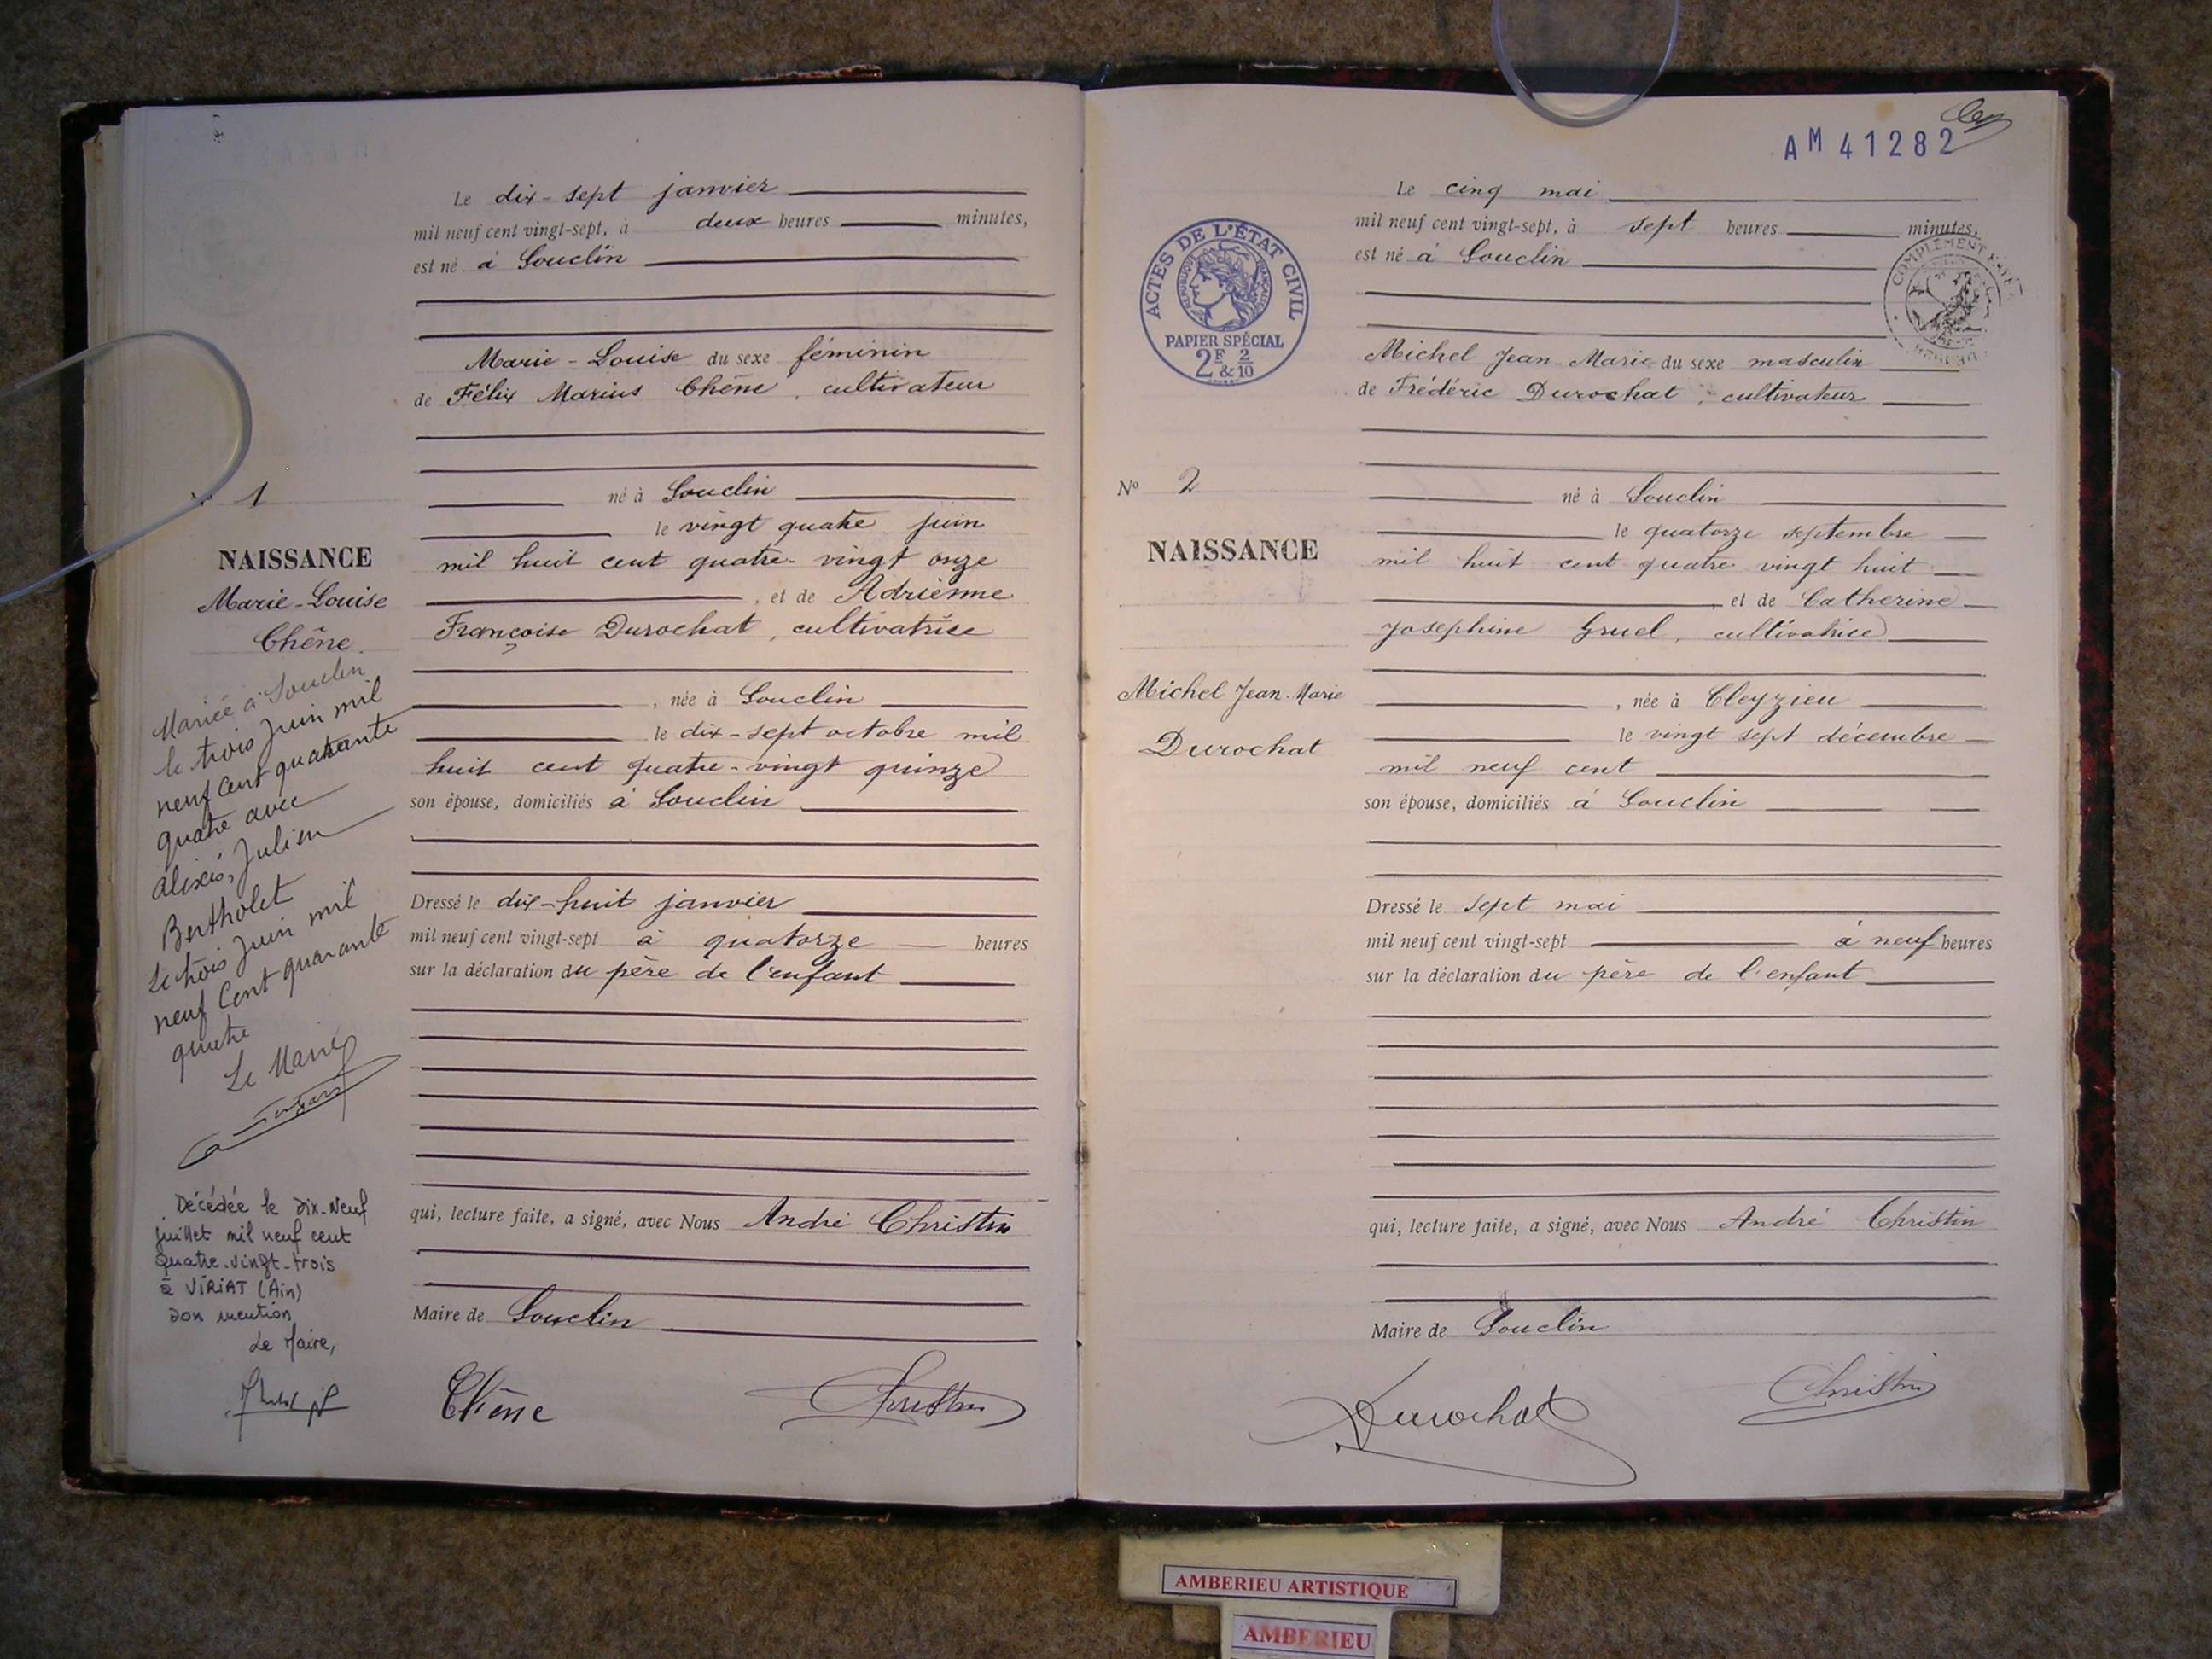 Le dix-sept janvier
mil neuf cent vingt-sept, à deux heures minutes,
est né à Souclin
Marie-Louise du sexe féminin
de Félix Marius Chêne, cultivateur
né à Souclin
le vingt quatre juin
mil huit cent quatre-vingt onze
, et de Adrienne
Françoise Durochat, cultivatrice
, née à Souclin
le dix-sept octobre mil
huit cent quatre-vingt quinze
son épouse, domiciliés à Souclin
Dressé le dix-huit janvier
mil neuf cent vingt-sept à quatorze heures
sur la déclaration du père de l'enfant
qui, lecture faite, a signé, avec Nous André Christin
Maire de Souclin
Chêne
Christin
1
NAISSANCE
Marie-Louise
Chêne.
Mariée à Souclin
le trois Juin mil
neuf cent quarante
quatre avec
Alixis, Julien
Bertholet
Le trois Juin mil
neuf Cent quarante
quatre
Le Maire
Décédée le Dix-Neuf
juillet mil neuf cent
quatre-vingt-trois
à VIRIAT (Ain)
Don mention
Le Maire,
AM 41282
ACTES DE L'ÉTAT CIVIL
RÉPUBLIQUE FRANÇAISE
PAPIER SPÉCIAL
2F & 2/10
COMPLÉMENT
Le cinq mai
mil neuf cent vingt-sept, à sept heures minutes,
est né à Souclin
Michel Jean-Marie du sexe masculin
de Frédéric Durochat, cultivateur
né à Souclin
le quatorze septembre
mil huit cent quatre vingt huit
, et de Catherine
Josephine Gruel, cultivatrice
, née à Cleyzieu
le vingt sept décembre
mil neuf cent
son épouse, domiciliés à Souclin
Dressé le sept mai
mil neuf cent vingt-sept à neuf heures
sur la déclaration du père de l'enfant
qui, lecture faite, a signé, avec Nous André Christin
Maire de Souclin
Durochat
Christin
No 2
NAISSANCE
Michel Jean-Marie
Durochat
AMBERIEU ARTISTIQUE
AMBERIEU